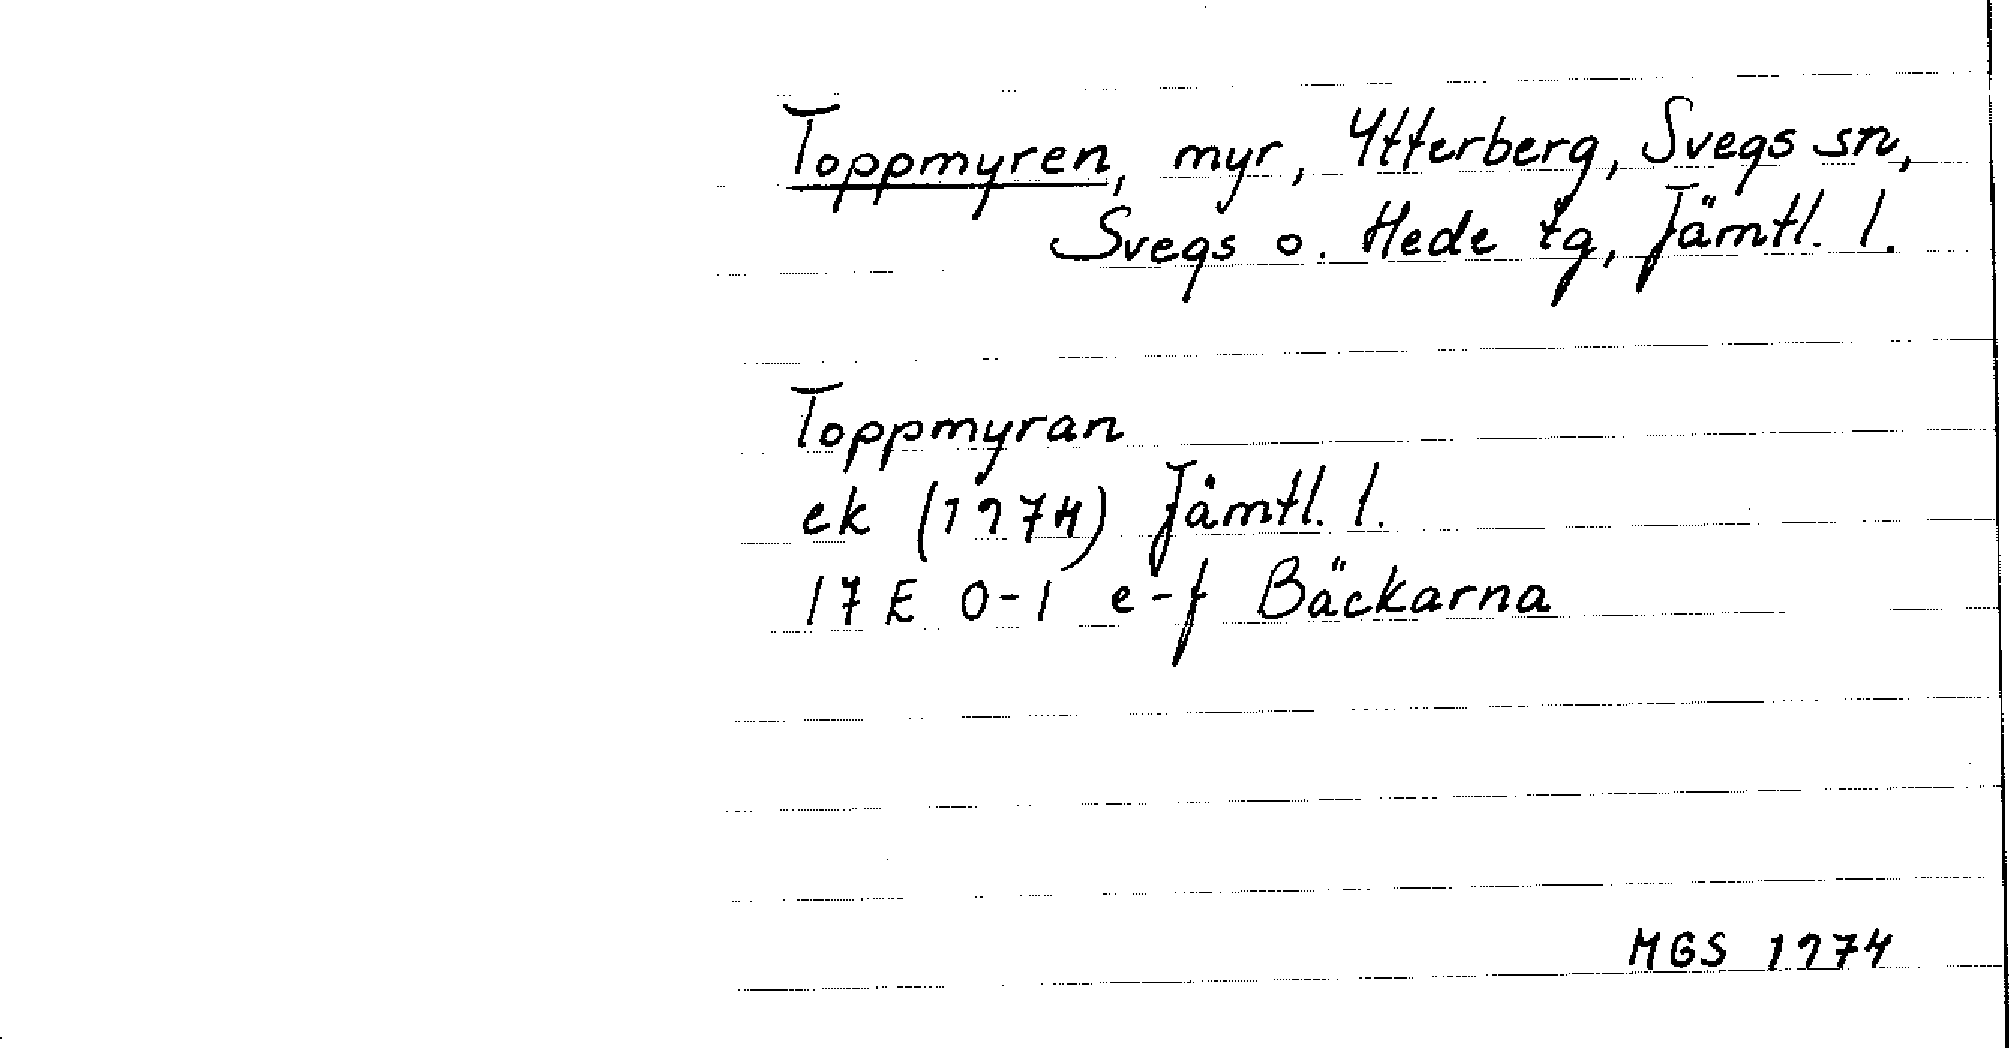 Toppmyren, myr, Ytterberg, Svegs sn,
Svegs o. Hede tg, Jämtl. l.
Toppmyran
ek (1974) Jämtl. l.
17 E 0-1 e-f Bäckarna
MGS 1974